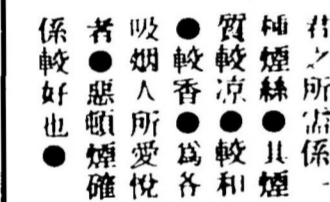 君之所需係一
種煙絲●其煙
質較凉●較和
●較香●爲各
吸烟人所愛悅
者●惡頓煙確
係較好也●